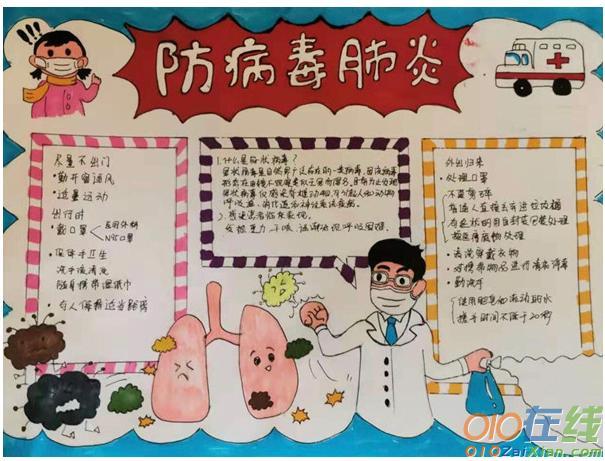 防病毒肺炎
尽量不出门
•勤开窗通风
•适量运动
出行时
•戴口罩<医用外科
N95口罩
•保障手卫生
洗手液清洗
随身携带湿纸巾
•与人保持适当距离
1.什么是冠状病毒?
冠状病毒是自然界广泛存在的一类病毒,因该病毒
形态在电镜下观察类似王冠而得名,目前为止发现
冠状病毒仅感染脊椎动物,可引起人和动物
呼吸道、消化道和神经系统疾病。
2.感染患者临床表现。
发热、乏力、干咳、逐渐出现呼吸困难。
外出归来
•处理口罩
不要剪碎
普通人直接丢弃垃圾桶
存在疑似用自封袋包装处理
按医疗废物处理
•清洗穿戴衣物
•对携带物品进行清洁消毒
•勤洗手
使用肥皂和流动的水
揉手时间不低于20秒
010在线
010ZaiXian.com